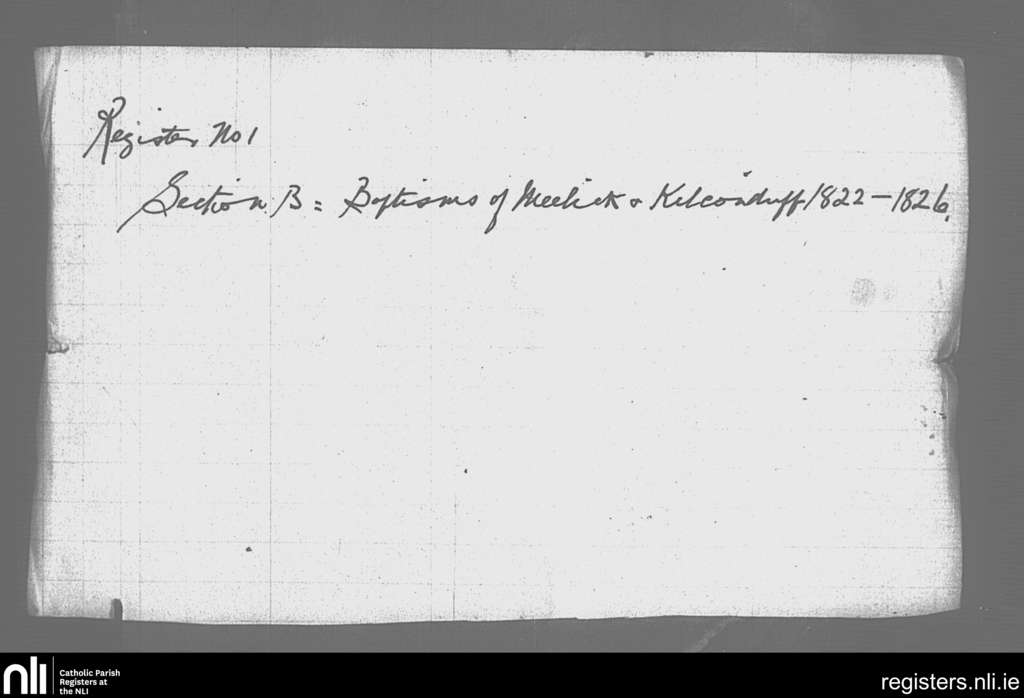 Register No 1
Section B = Baptisms of Meelick & Kilconduff 1822 - 1826.
nli
Catholic Parish
Registers at
the NLI
registers.nli.ie